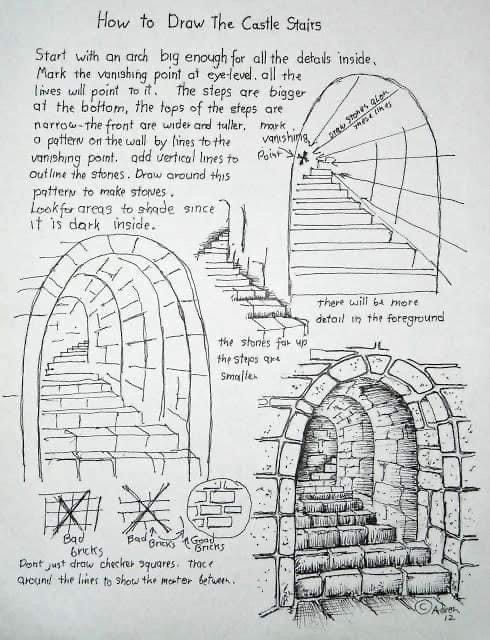 How to Draw The Castle Stairs
Start with an arch big enough for all the details inside.
Mark the vanishing point at eye-level. all the
lives will point to it. The steps are bigger
at the bottom, the tops of the steps are
narrow-the front are wider and taller. mark
a pattern on the wall by lines to the
vanishing point. add vertical lines to
outline the stones. Draw around this
pattern to make stones.
Look for areas to shade since
it is dark inside.
vanishing
Point
Draw stones along
these lines
there will be more
detail in the foreground
the stones far up
the steps are
smaller
Bad
bricks
Bad
Bricks
Good
Bricks
Dont just draw checker squares. Trace
around the lines to show the morter between.
© Adron
12